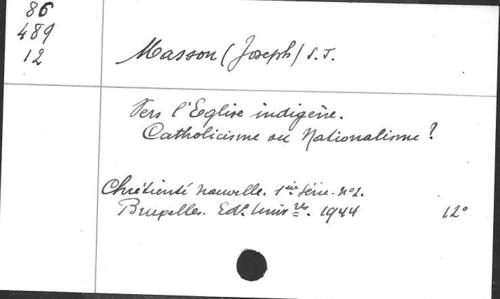 86
489
12
Masson (Joseph) S.J.
Vers l'Eglise indigène.
Catholicisme ou Nationalisme?
Chrétienté nouvelle. 1ière Série. N°2.
Bruxelles. Ed. Univ.res. 1944 12°